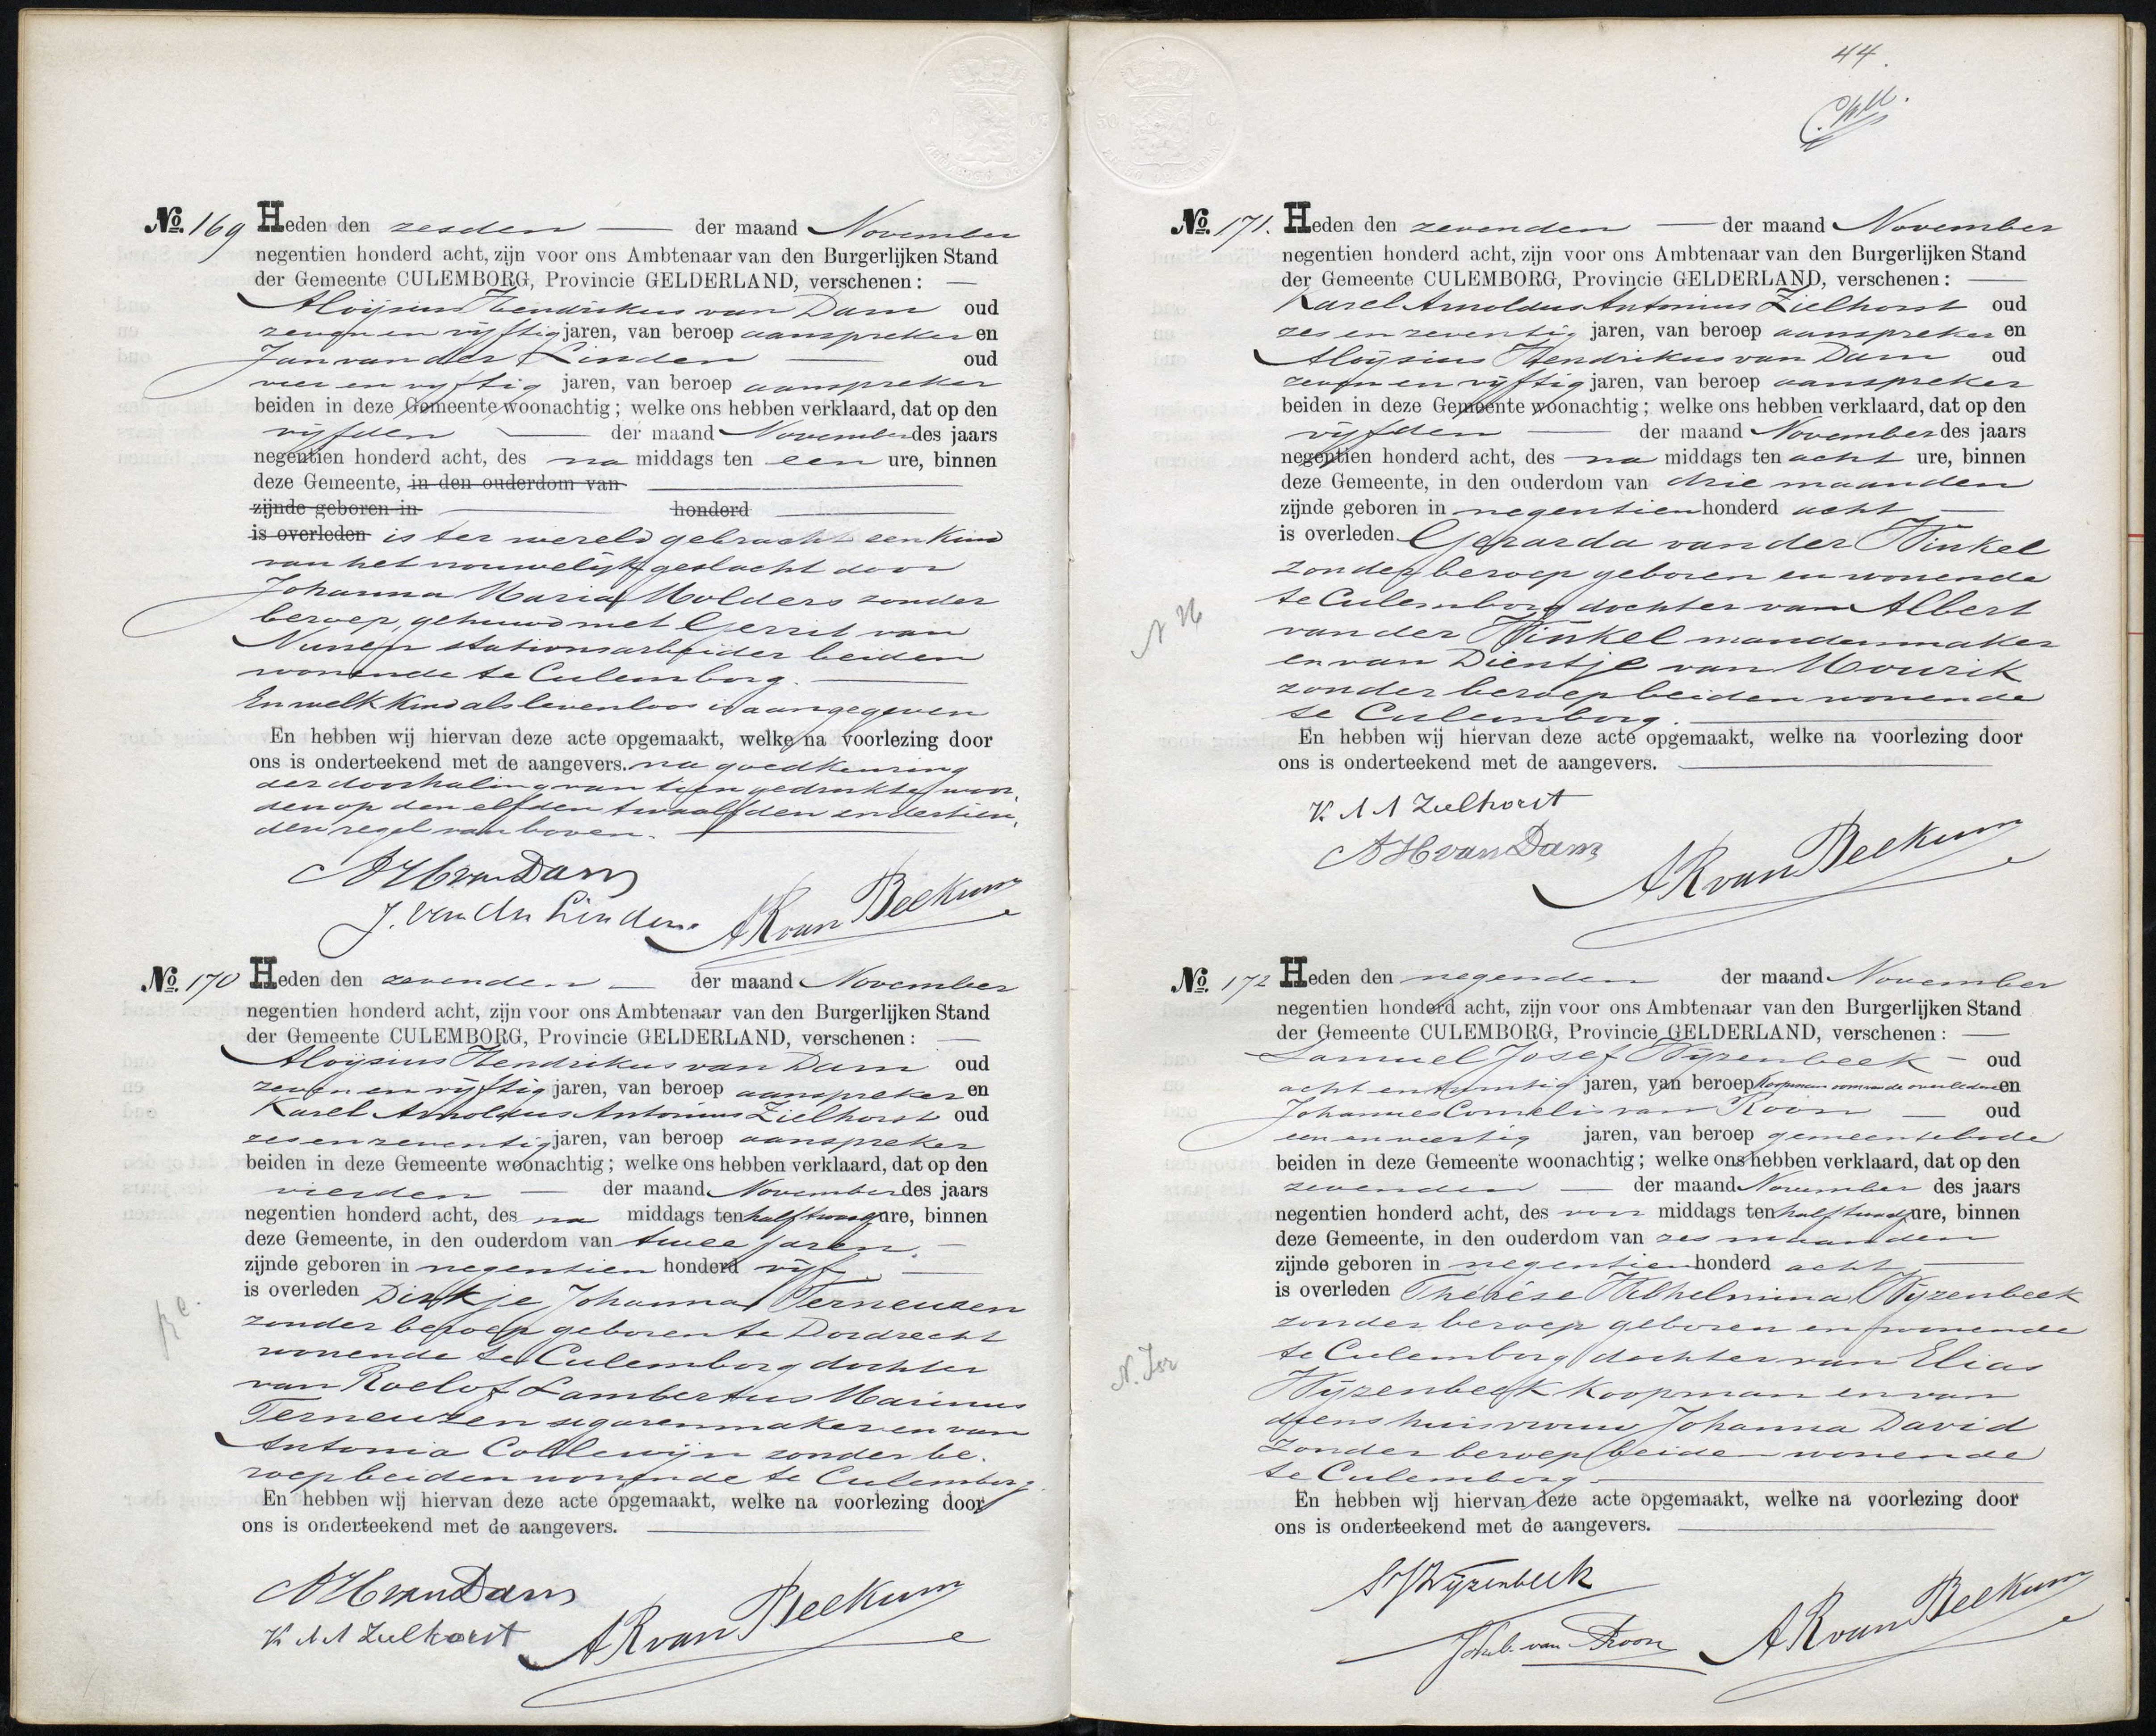 No. 169 Heden den zesden — der maand November
negentien honderd acht, zijn voor ons Ambtenaar van den Burgerlijken Stand
der Gemeente CULEMBORG, Provincie GELDERLAND, verschenen: —
Aloijsius Hendrikus van Dam oud
zeven en vijftig jaren, van beroep aanspreker en
Jan van der Linden — oud
vier en vijftig jaren, van beroep aanspreker
beiden in deze Gemeente woonachtig; welke ons hebben verklaard, dat op den
vijfden — der maand November des jaars
negentien honderd acht, des na middags ten een ure, binnen
deze Gemeente, in den ouderdom van —
zijnde geboren in — honderd —
is overleden is ter wereld gebracht een kind
van het vrouwelijk geslacht door
Johanna Maria Molders zonder
beroep, gehuwd met Gerrit van
Nunen stationsarbeider beiden
wonende te Culemborg. —
En welk kind als levenloos is aangegeven
En hebben wij hiervan deze acte opgemaakt, welke na voorlezing door
ons is onderteekend met de aangevers. na goedkeuring
der doorhaling van tien gedrukte woor-
den op den elfden twaalfden en dertien-
den regel van boven. —
AHvanDam
J. van der Linden. ARvanBeekum
No. 170 Heden den zevenden — der maand November
negentien honderd acht, zijn voor ons Ambtenaar van den Burgerlijken Stand
der Gemeente CULEMBORG, Provincie GELDERLAND, verschenen: —
Aloijsius Hendrikus van Dam oud
zeven en vijftig jaren, van beroep aanspreker en
Karel Arnoldus Antonius Zielhorst oud
zes en zeventig jaren, van beroep aanspreker
beiden in deze Gemeente woonachtig; welke ons hebben verklaard, dat op den
vierden — der maand November des jaars
negentien honderd acht, des na middags ten half twaalf ure, binnen
deze Gemeente, in den ouderdom van twee jaren. —
zijnde geboren in negentien honderd vijf —
is overleden Dirkje Johanna Terneuzen
zonder beroep geboren te Dordrecht
wonende te Culemborg dochter
van Roelof Lambertus Marinus
Terneuzen sigarenmaker en van
Antonia Collewijn zonder be-
roep beiden wonende te Culemborg.
En hebben wij hiervan deze acte opgemaakt, welke na voorlezing door
ons is onderteekend met de aangevers. —
AHvanDam
K A A Zielhorst ARvanBeekum
44.
No. 171. Heden den zevenden — der maand November
negentien honderd acht, zijn voor ons Ambtenaar van den Burgerlijken Stand
der Gemeente CULEMBORG, Provincie GELDERLAND, verschenen: —
Karel Arnoldus Antonius Zielhorst oud
zes en zeventig jaren, van beroep aanspreker en
Aloijsius Hendrikus van Dam oud
zeven en vijftig jaren, van beroep aanspreker
beiden in deze Gemeente woonachtig; welke ons hebben verklaard, dat op den
vijfden — der maand November des jaars
negentien honderd acht, des na middags ten acht ure, binnen
deze Gemeente, in den ouderdom van drie maanden
zijnde geboren in negentien honderd acht —
is overleden Gerarda van der Winkel
zonder beroep geboren en wonende
te Culemborg dochter van Albert
van der Winkel mandenmaker
en van Dientje van Mourik
zonder beroep beiden wonende
te Culemborg. —
N H
En hebben wij hiervan deze acte opgemaakt, welke na voorlezing door
ons is onderteekend met de aangevers. —
K. A A Zielhorst
AHvanDam
ARvanBeekum
No. 172 Heden den negenden der maand November
negentien honderd acht, zijn voor ons Ambtenaar van den Burgerlijken Stand
der Gemeente CULEMBORG, Provincie GELDERLAND, verschenen: —
Samuel Josef Wijzenbeek — oud
acht en twintig jaren, van beroep koopman oom van de overledene en
Johannes Cornelis van Roon — oud
een en veertig jaren, van beroep gemeentebode
beiden in deze Gemeente woonachtig; welke ons hebben verklaard, dat op den
zevenden — der maand November des jaars
negentien honderd acht, des voor middags ten half twaalf ure, binnen
deze Gemeente, in den ouderdom van zes maanden
zijnde geboren in negentien honderd acht —
is overleden Thérèse Wilhelmina Wijzenbeek
zonder beroep geboren en wonende
te Culemborg dochter van Elias
Wijzenbeek koopman en van
diens huisvrouw Johanna David
zonder beroep beiden wonende
te Culemborg —
N. Isr
En hebben wij hiervan deze acte opgemaakt, welke na voorlezing door
ons is onderteekend met de aangevers. —
SJWijzenbeek
van Roon ARvanBeekum